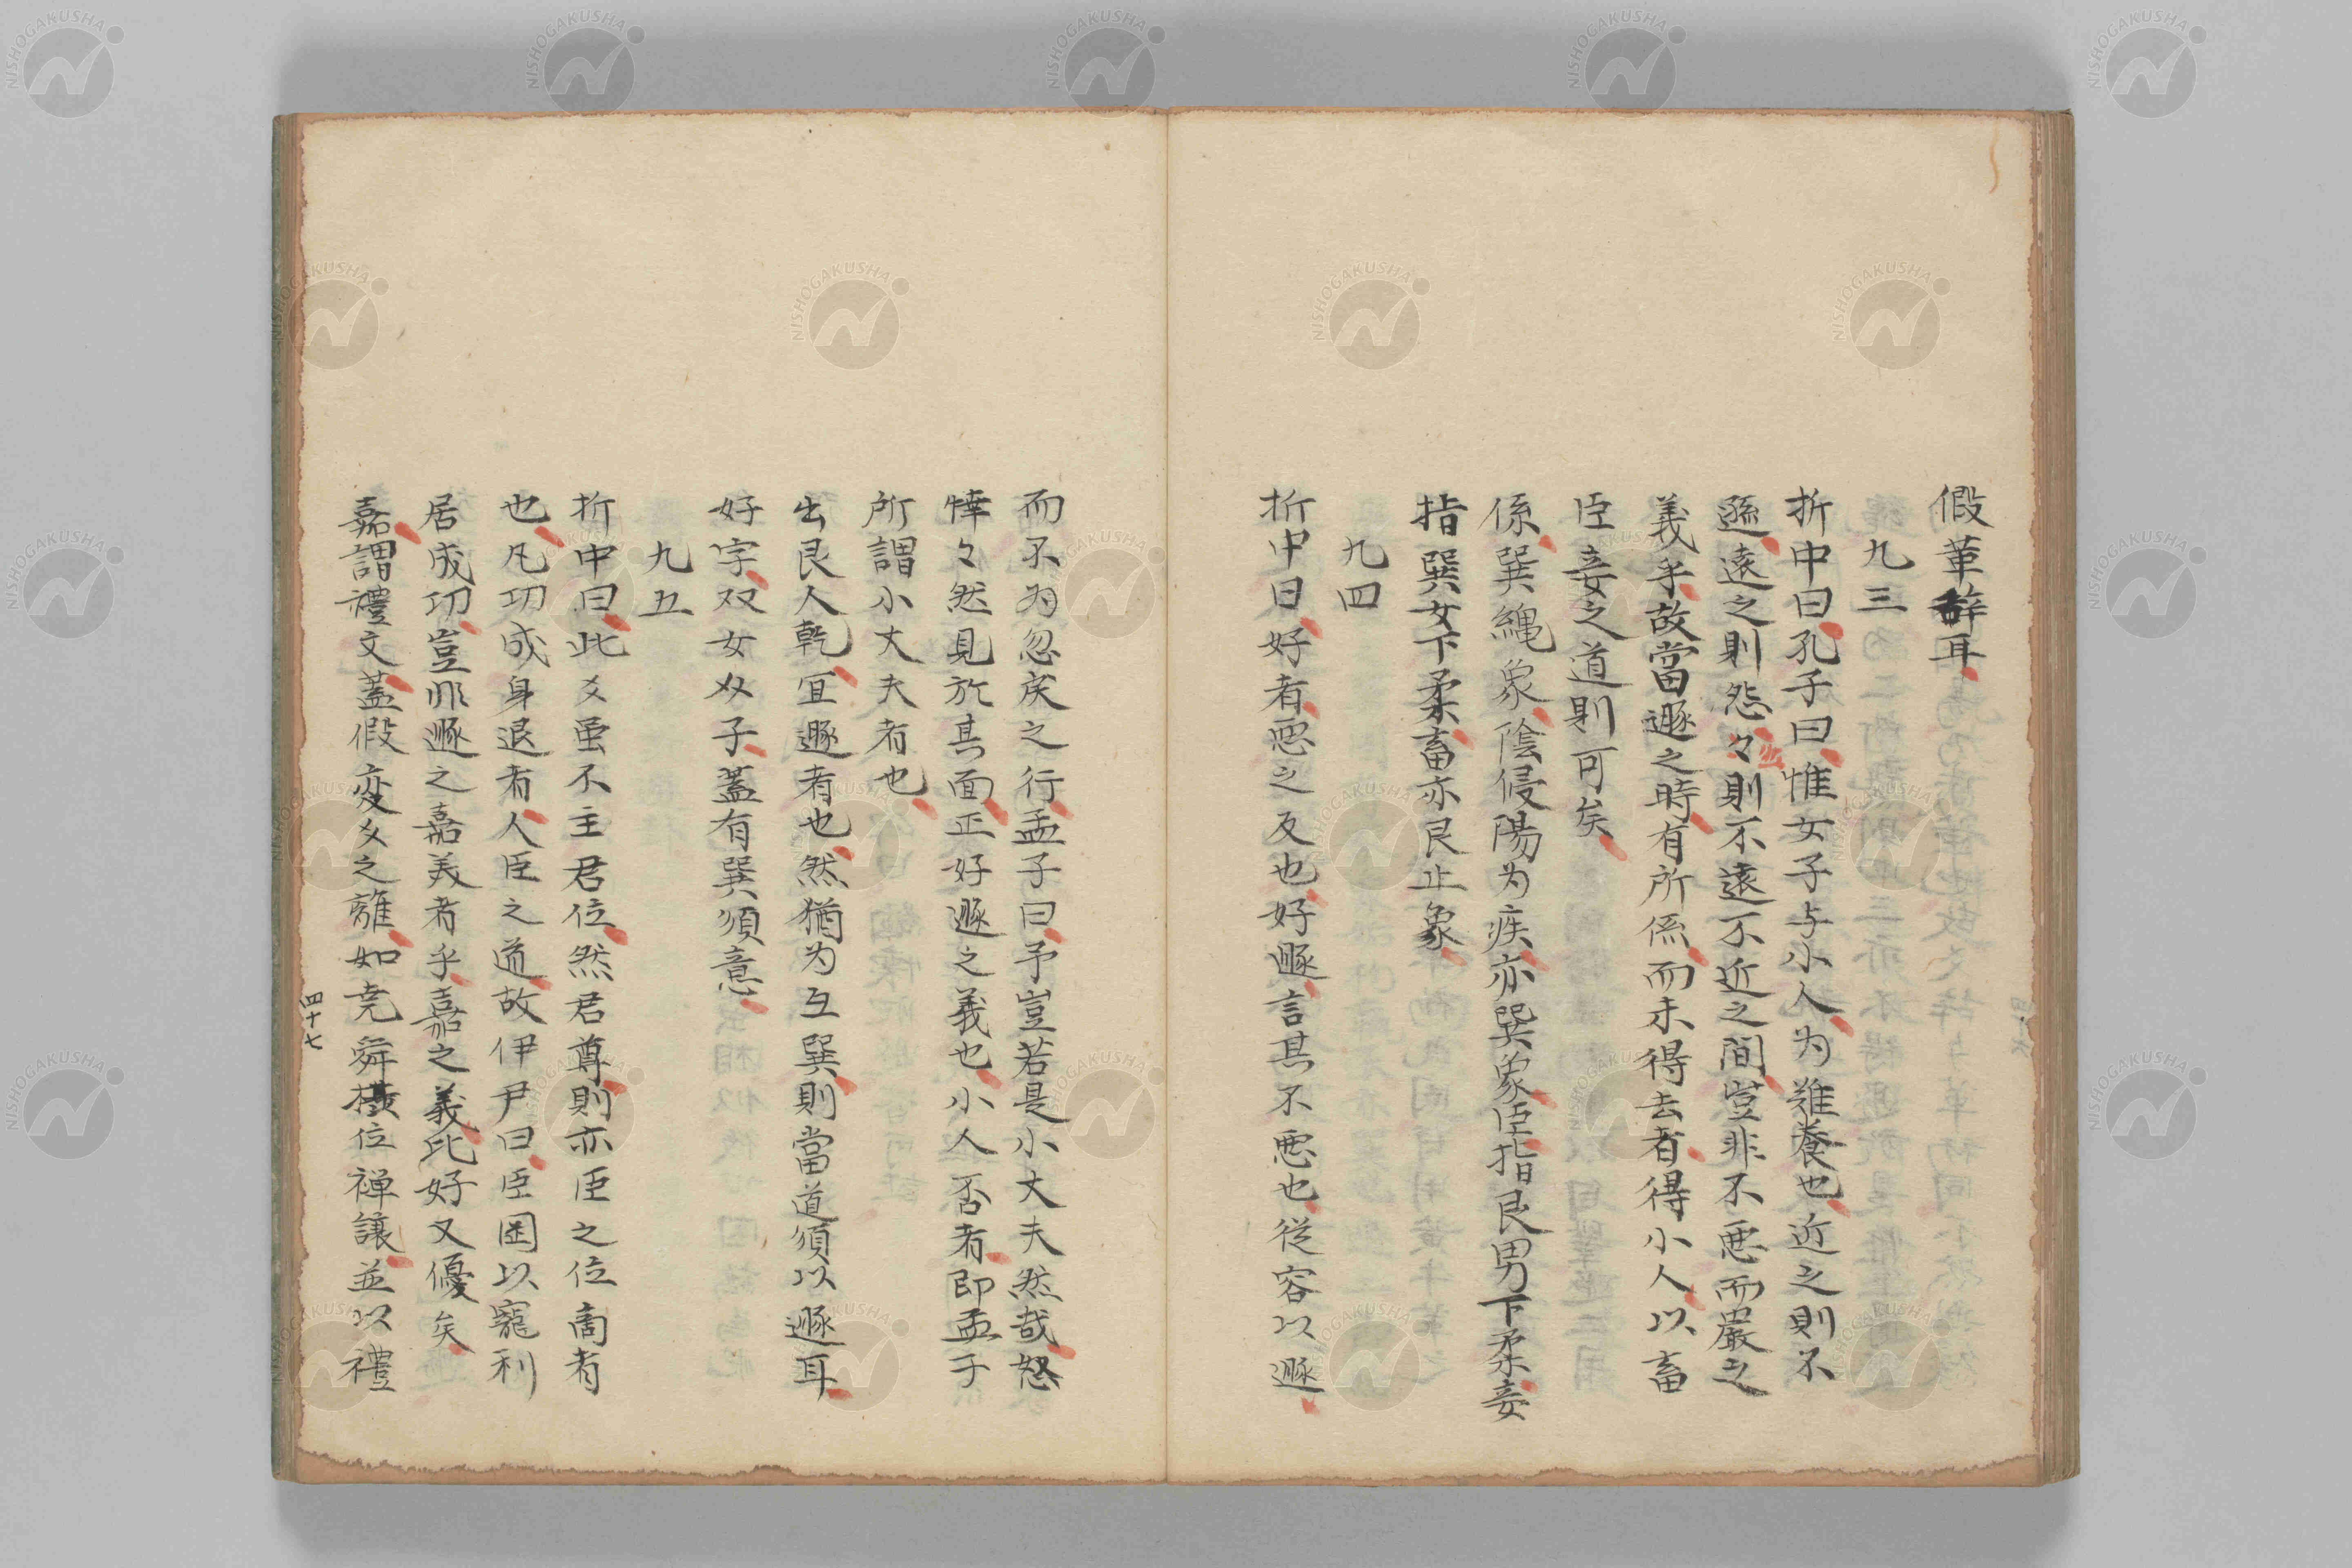 假革辭耳
九三
折中曰孔子曰惟女子与小人为難養也近之則不
遜遠之則怨々則不遠不近之間豈非不悪而嚴之
義乎故當遯之時有所係而未得去者得小人以畜
臣妾之道則可矣
係巽縄象陰侵陽为疾亦巽象臣指艮男下柔妾
指巽女下柔畜亦艮止象
九四
折中曰好者悪之反也好遯言其不悪也従容以遯
而不为忽戾之行孟子曰予豈若是小丈夫然哉怒
悻々然見於其面正好遯之義也小人否者即孟子
所謂小丈夫者也
出艮入乾冝遯者也然猶为互巽則當道須以遯耳
好字双女爻子蓋有巽須意
九五
折中曰此爻虽不主君位然君尊則亦臣之位高者
也凡功成身退者人臣之道故伊尹曰臣罔以寵利
居成功豈非遯之嘉美者乎嘉之義比好又優矣
嘉謂禮文蓋假変爻之離如尭舜横位禅讓並以禮
四十七
NISHOGAKUSHA